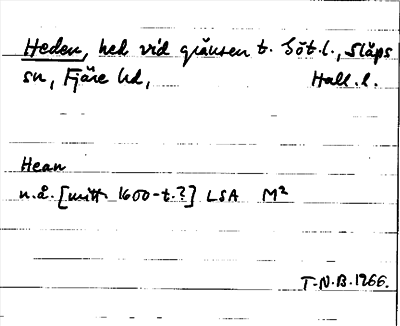 Heden, hed vid gränsen t. Göt.l., Släps
sn, Fjäre hd, Hall.l.
Hean
u.å. [mitt 1600-t.?] LSA M²
T.N.B. 1966.